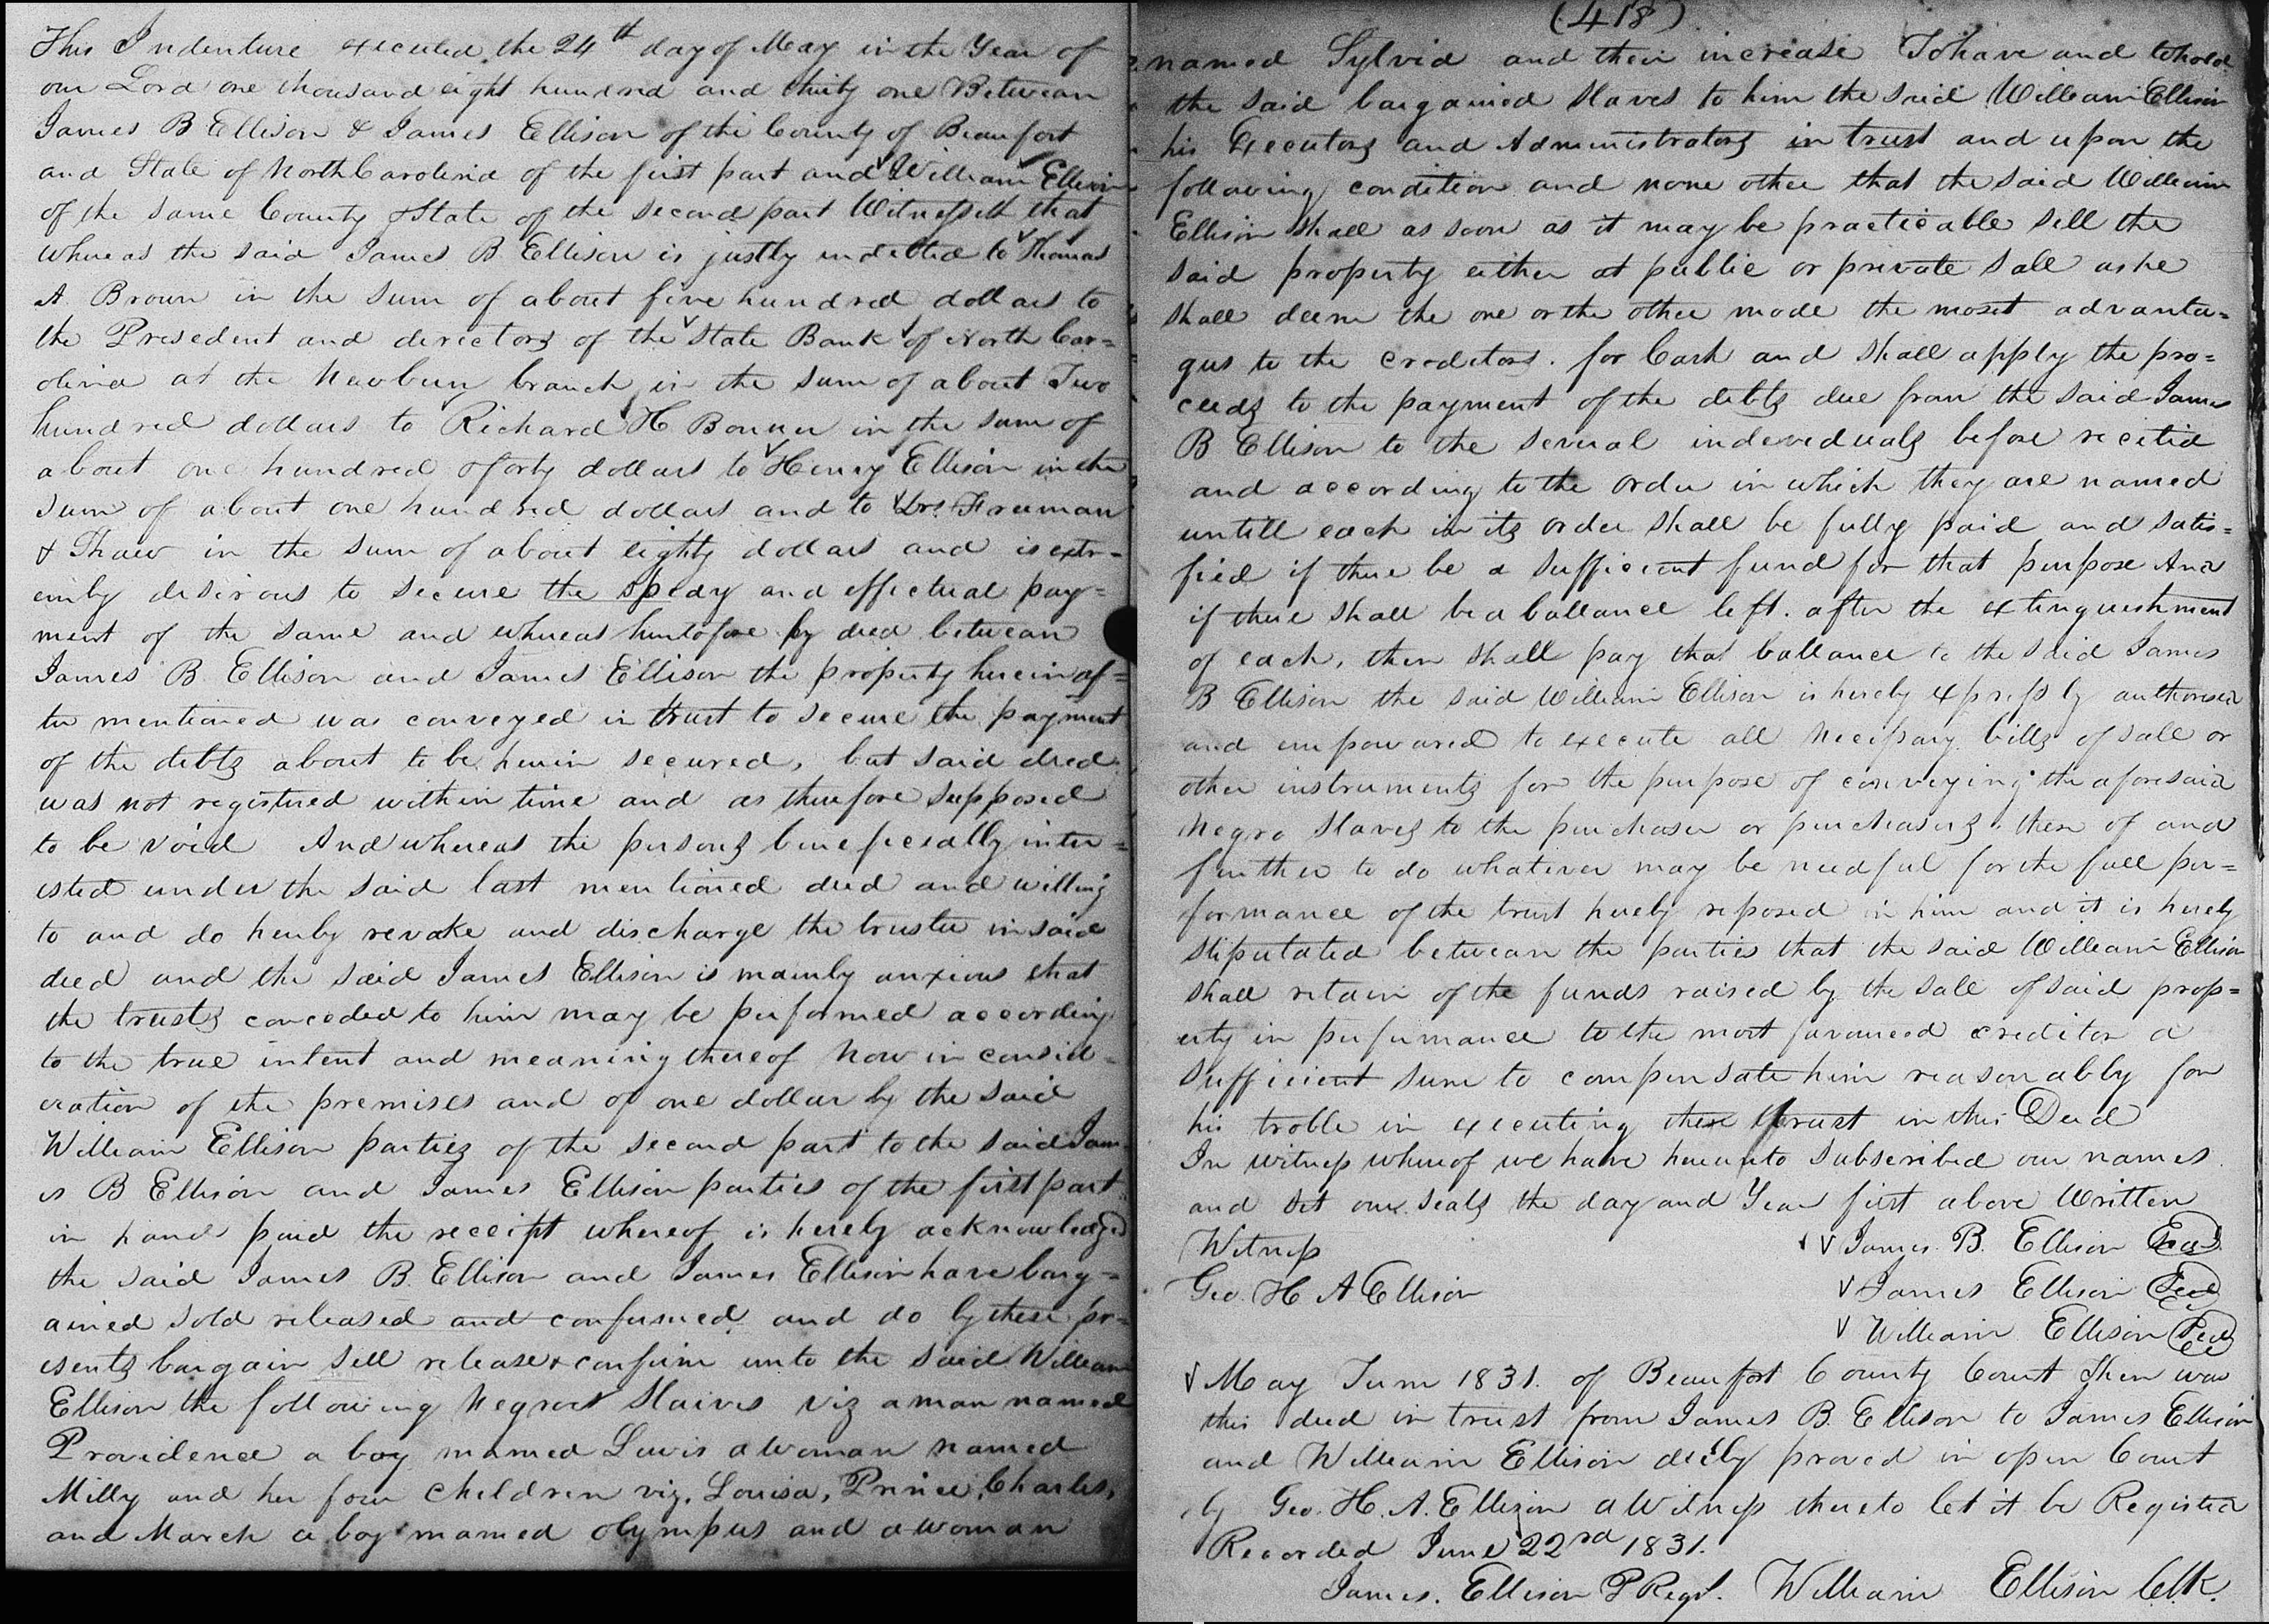 This Indenture executed the 24th day of May in the Year of
our Lord one thousand eight hundred and thirty one Between
James B Ellison & James Ellison of the County of Beaufort
and State of North Carolina of the first part and William Ellison
of the same County & State of the second part Witnesseth that
whereas the said James B. Ellison is justly indebted to Thomas
A. Brown in the sum of about five hundred dollars to
the Presedent and directors of the State Bank of North Car=
olina at the Newburn branch in the sum of about Two
hundred dollars to Richard H Bonner in the sum of
about one hundred & forty dollars to Henry Ellison in the
sum of about one hundred dollars and to Drs. Freeman
& Shaw in the sum of about eighty dollars and is extr=
emly desirous to secure the spedy and effectual pay=
ment of the same and whereas huntofore by deed between
James B. Ellison and James Ellison the property hereinaf=
ter mentioned was conveyed in trust to secure the payment
of the debts about to be herein secured, but said deed
was not registered within time and as therefore supposed
to be void And whereas the persons beneficially inter=
ested under the said last mentioned deed and willing
to and do hereby revoke and discharge the trustee in said
deed and the said James Ellison is mainly anxious that
the trusts conceded to him may be performed according
to the true intent and meaning thereof Now in consid=
eration of the premises and of one dollar by the said
William Ellison parties of the second part to the said Jam
es B Ellison and James Ellison parties of the first part
in hand paid the receipt whereof is hereby acknowledged
the said James B. Ellison and James Ellison have barg=
ained sold released and confirmed and do by these pr=
esents bargain sell release & confirm unto the said William
Ellison the following Negroes Slaves viz a man named
Providence a boy mamed Lewis a woman named
Milly and her four children viz. Louisa, Prince, Charles,
and March a boy mamed Olympus and a woman
(418)
named Sylvid and their increase To have and to hold
the said bargained slaves to him the said William Ellison
his Executors and Administrators in trust and upon the
following condition and none other that the said William
Ellison shall as soon as it may be practicable sell the
said property either at public or private sale as he
shall deem the one or the other mode the most advanta=
gus to the creditors. for Cash and shall apply the pro=
ceeds to the payment of the debts due from the said James
B Ellison to the several indeveduals before recited
and according to the order in which they are named
untill each in its order shall be fully paid and satis=
fied if there be a sufficient fund for that purpose And
if there shall be a ballance left. after the extinguishment
of each, then shall pay that ballance to the said James
B Ellison the said William Ellison is hereby expressly authorised
and empowared to execute all necessary bills of sale or
other instruments for the purpose of conveying the aforesaid
Negro Slaves to the purchaser or purchasers there of and
further to do whatever may be needful for the full per=
formance of the trust hereby reposed in him and it is hereby
stipulated between the parties that the said William Ellison
shall retain of the funds raised by the sale of said prop=
erty in perfurmance to the most favoured creditor a
sufficient sum to compensate him reasonably for
his troble in executing these trust in this Deed
In witness whereof we have hereunto subscribed our names
and set our seals the day and Year first above Written
Witness James B. Ellison Seal
Geo. H A Ellison James Ellison Seal
William Ellison Seal
May Term 1831. of Beaufort County Court Then was
this deed in trust from James B. Ellison to James Ellison
and William Ellison duly proved in open Court
by Geo. H. A. Ellison a Witness thereto let it be Registed
Recorded June 22nd 1831.
James. Ellison P Regt. William Ellison Clk.